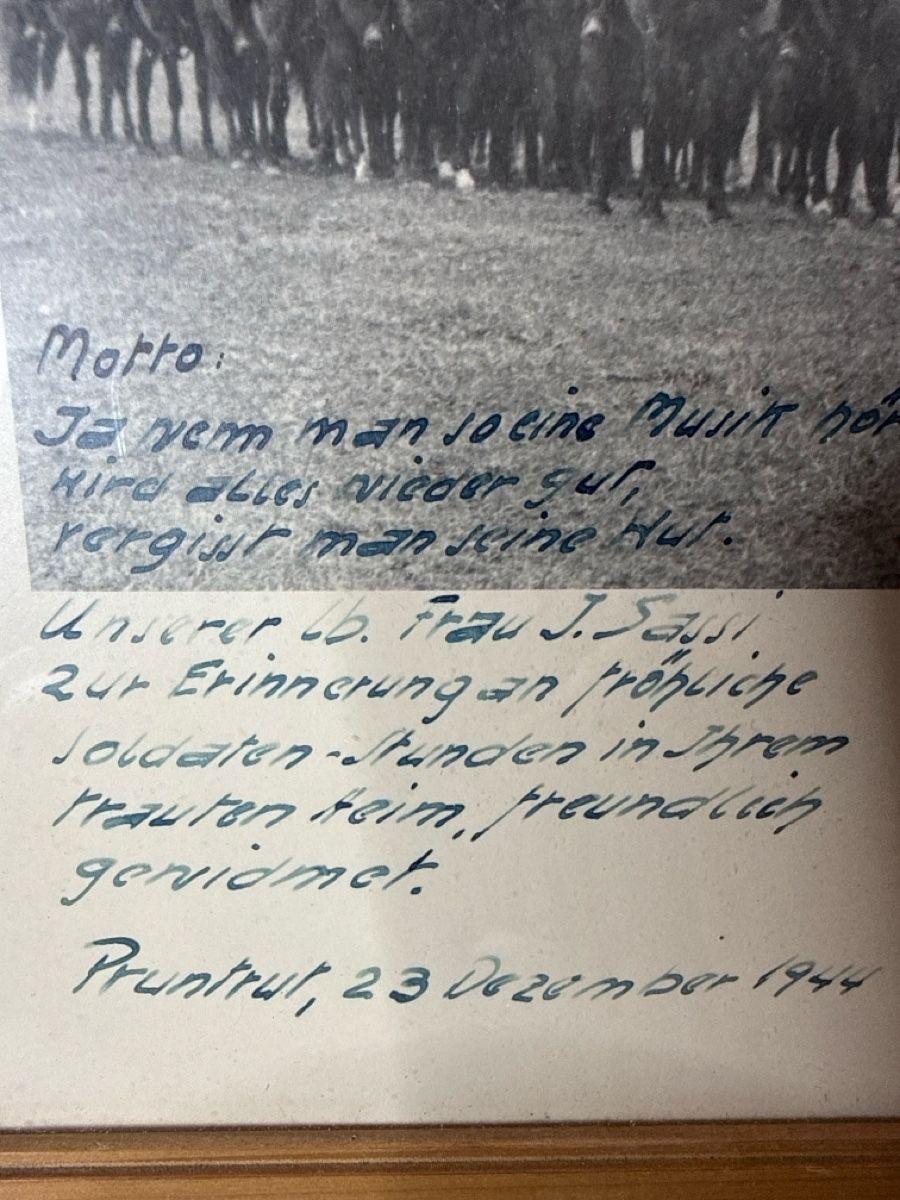 Motto:
Ja wenn man so eine Musik hör
wird alles wieder gut,
vergisst man seine Wut.
Unserer lb. Frau J. Sassi
zur Erinnerung an fröhliche
Soldaten-Stunden in Ihrem
trauten Heim, freundlich
gewidmet.
Pruntrut, 23 Dezember 1944